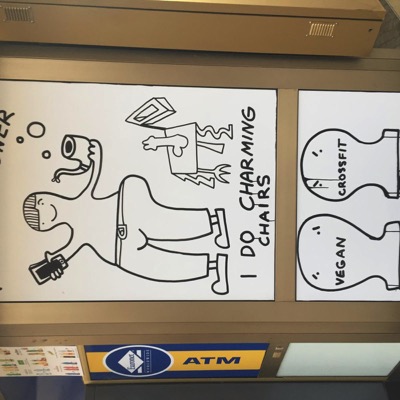 OWER
I DO CHARMING
CHAIRS
CROSSFIT
VEGAN
ATM